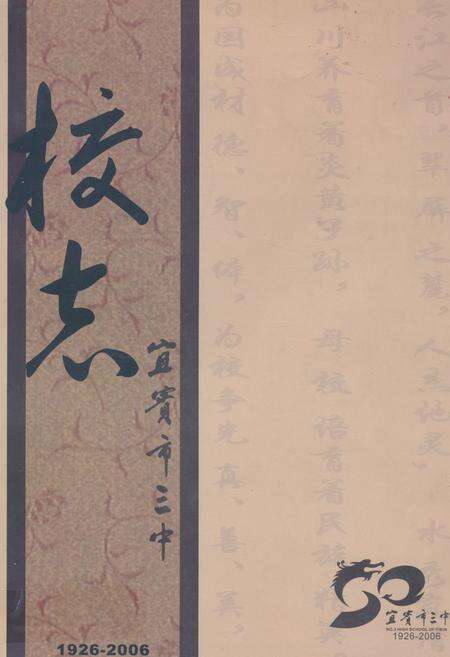 校志
宜宾市三中
1926-2006
长江之首，翠屏之麓，人杰地灵，水
山川养育着炎黄子孙，母校培育着民族精英
为国成材德、智、体，为校争光真、善、美，
宜宾市三中
NO.3 HIGH SCHOOL OF YIBIN
1926-2006